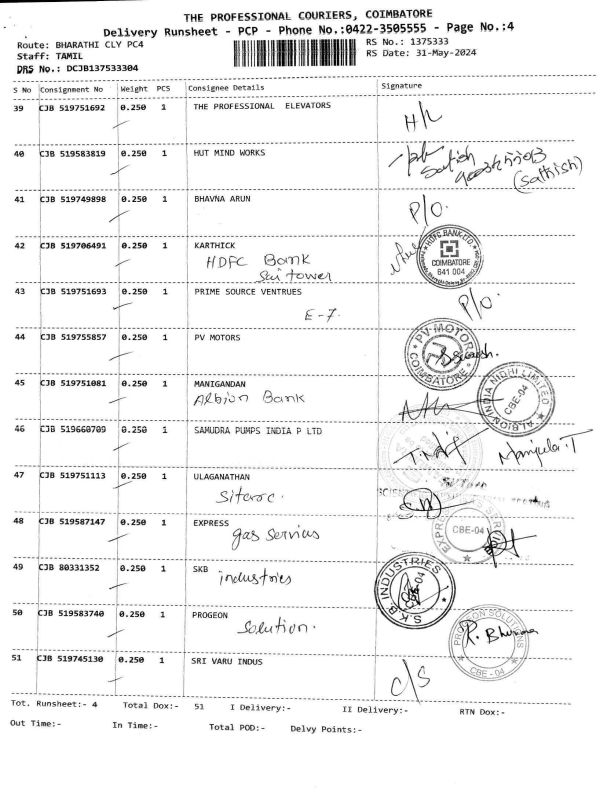 THE PROFESSIONAL COURIERS, COIMBATORE
Delivery Runsheet - PCP - Phone No.:0422-3505555 - Page No.:4
Route: BHARATHI CLY PC4 RS No.: 1375333
Staff: TAMIL RS Date: 31-May-2024
DRS No.: DCJB137533304
S No Consignment No Weight PCS Consignee Details Signature
39 CJB 519751692 0.250 1 THE PROFESSIONAL ELEVATORS
H/L
40 CJB 519583819 0.250 1 HUT MIND WORKS
Satish
(Sathish)
41 CJB 519749898 0.250 1 BHAVNA ARUN
P/O.
42 CJB 519706491 0.250 1 KARTHICK
HDFC Bank
HDFC BANK LTD.
COIMBATORE
641 004
43 CJB 519751693 0.250 1 PRIME SOURCE VENTRUES
E-7.
P/O.
44 CJB 519755857 0.250 1 PV MOTORS
PV MOTORS
COIMBATORE
45 CJB 519751081 0.250 1 MANIGANDAN
Albion Bank
ALBION INDIA NIDHI LIMITED
CBE-04
46 CJB 519660709 0.250 1 SAMUDRA PUMPS INDIA P LTD
Manjula.T
47 CJB 519751113 0.250 1 ULAGANATHAN
48 CJB 519587147 0.250 1 EXPRESS
gas Services
CBE-04
49 CJB 80331352 0.250 1 SKB
industries
S.K.B. INDUSTRIES
50 CJB 519583740 0.250 1 PROGEON
Solution.
CBE-04
51 CJB 519745130 0.250 1 SRI VARU INDUS
C/S
Tot. Runsheet:- 4 Total Dox:- 51 I Delivery:- II Delivery:- RTN Dox:-
Out Time:- In Time:- Total POD:- Delvy Points:-